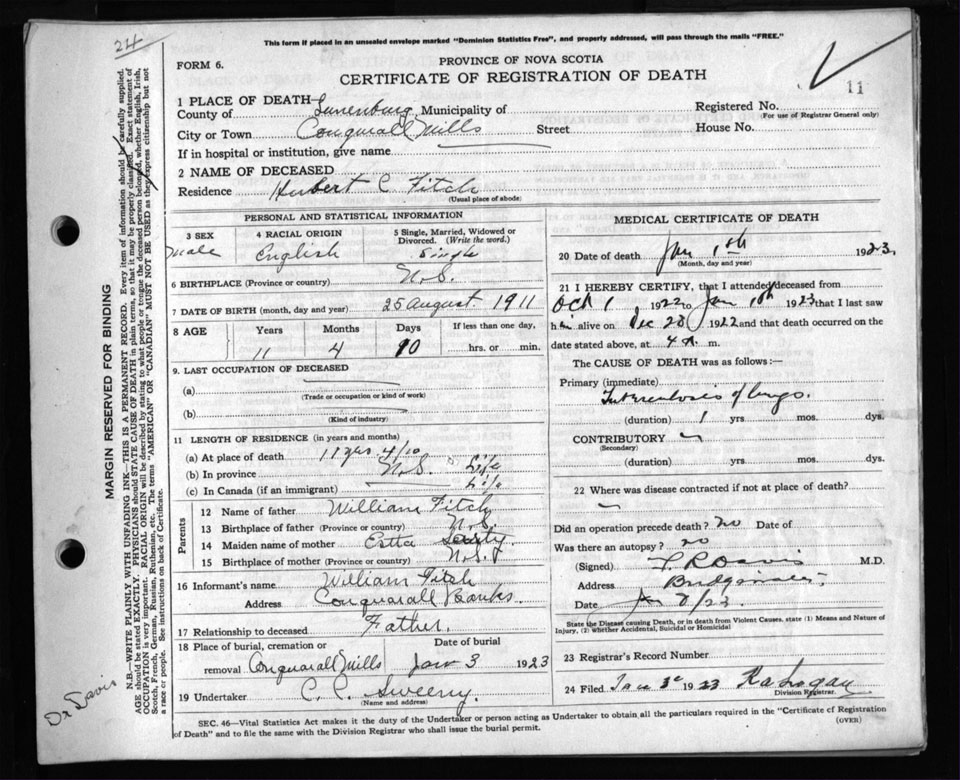 24
This form if placed in an unsealed envelope marked "Dominion Statistics Free", and properly addressed, will pass through the mails "FREE."
FORM 6.
PROVINCE OF NOVA SCOTIA
CERTIFICATE OF REGISTRATION OF DEATH
11
1 PLACE OF DEATH
County of Lunenburg Municipality of
Registered No.
(For use of Registrar General only)
City or Town Conquerall Mills Street House No.
If in hospital or institution, give name
2 NAME OF DECEASED
Residence Herbert C. Fitch
(Usual place of abode)
PERSONAL AND STATISTICAL INFORMATION
3 SEX
Male
4 RACIAL ORIGIN
English
5 Single, Married, Widowed or Divorced. (Write the word.)
Single
6 BIRTHPLACE (Province or country) N.S.
7 DATE OF BIRTH (month, day and year) 25 August 1911
8 AGE Years Months Days If less than one day,
11 4 10 hrs. or min.
9. LAST OCCUPATION OF DECEASED
(a)
(Trade or occupation or kind of work)
(b)
(Kind of industry)
11 LENGTH OF RESIDENCE (in years and months)
(a) At place of death 11 yrs 4/10
(b) In province N.S. Life
(c) In Canada (if an immigrant) Life
Parents
12 Name of father William Fitch
13 Birthplace of father (Province or country) N.S.
14 Maiden name of mother Etta
15 Birthplace of mother (Province or country) N.S.
16 Informant's name William Fitch
Address Conquarall Banks
17 Relationship to deceased Father.
18 Place of burial, cremation or removal Conquarall Mills
Date of burial
Jan 3 1923
19 Undertaker C. C. Sweeny
(Name and address)
MEDICAL CERTIFICATE OF DEATH
20 Date of death Jan 1st 1923
(Month, day and year)
21 I HEREBY CERTIFY, that I attended deceased from
Oct 1 1922 to Jan 1st 1923 that I last saw
him alive on Dec 28 1922 and that death occurred on the
date stated above, at 4 a. m.
The CAUSE OF DEATH was as follows:—
Primary (immediate)
Tuberculosis of lungs.
(duration) 1 yrs. mos. dys.
CONTRIBUTORY
(Secondary)
(duration) yrs. mos. dys.
22 Where was disease contracted if not at place of death?
Did an operation precede death? no Date of
Was there an autopsy? no
(Signed) Davis M.D.
Address Bridgewater
Date Jan 2/23.
State the Disease causing Death, or in death from Violent Causes, state (1) Means and Nature of
Injury, (2) whether Accidental, Suicidal or Homicidal)
23 Registrar's Record Number
24 Filed Jan 3rd 1923
Division Registrar.
SEC. 46—Vital Statistics Act makes it the duty of the Undertaker or person acting as Undertaker to obtain all the particulars required in the "Certificate of Registration
of Death" and to file the same with the Division Registrar who shall issue the burial permit.
(OVER)
MARGIN RESERVED FOR BINDING
N.B.—WRITE PLAINLY WITH UNFADING INK—THIS IS A PERMANENT RECORD. Every item of information should be carefully supplied.
AGE should be stated EXACTLY. PHYSICIANS should STATE CAUSE OF DEATH in plain terms, so that it may be properly classified. Exact statement of
OCCUPATION is very important. RACIAL ORIGIN will be described by stating to what people or tongue the deceased person belonged, whether English, Irish,
Scotch, French, German, Russian, Ruthenian, etc. The terms "AMERICAN" OR "CANADIAN" MUST NOT BE USED as they express citizenship but not
a race or people. See instructions on back of Certificate.
Dr Davis